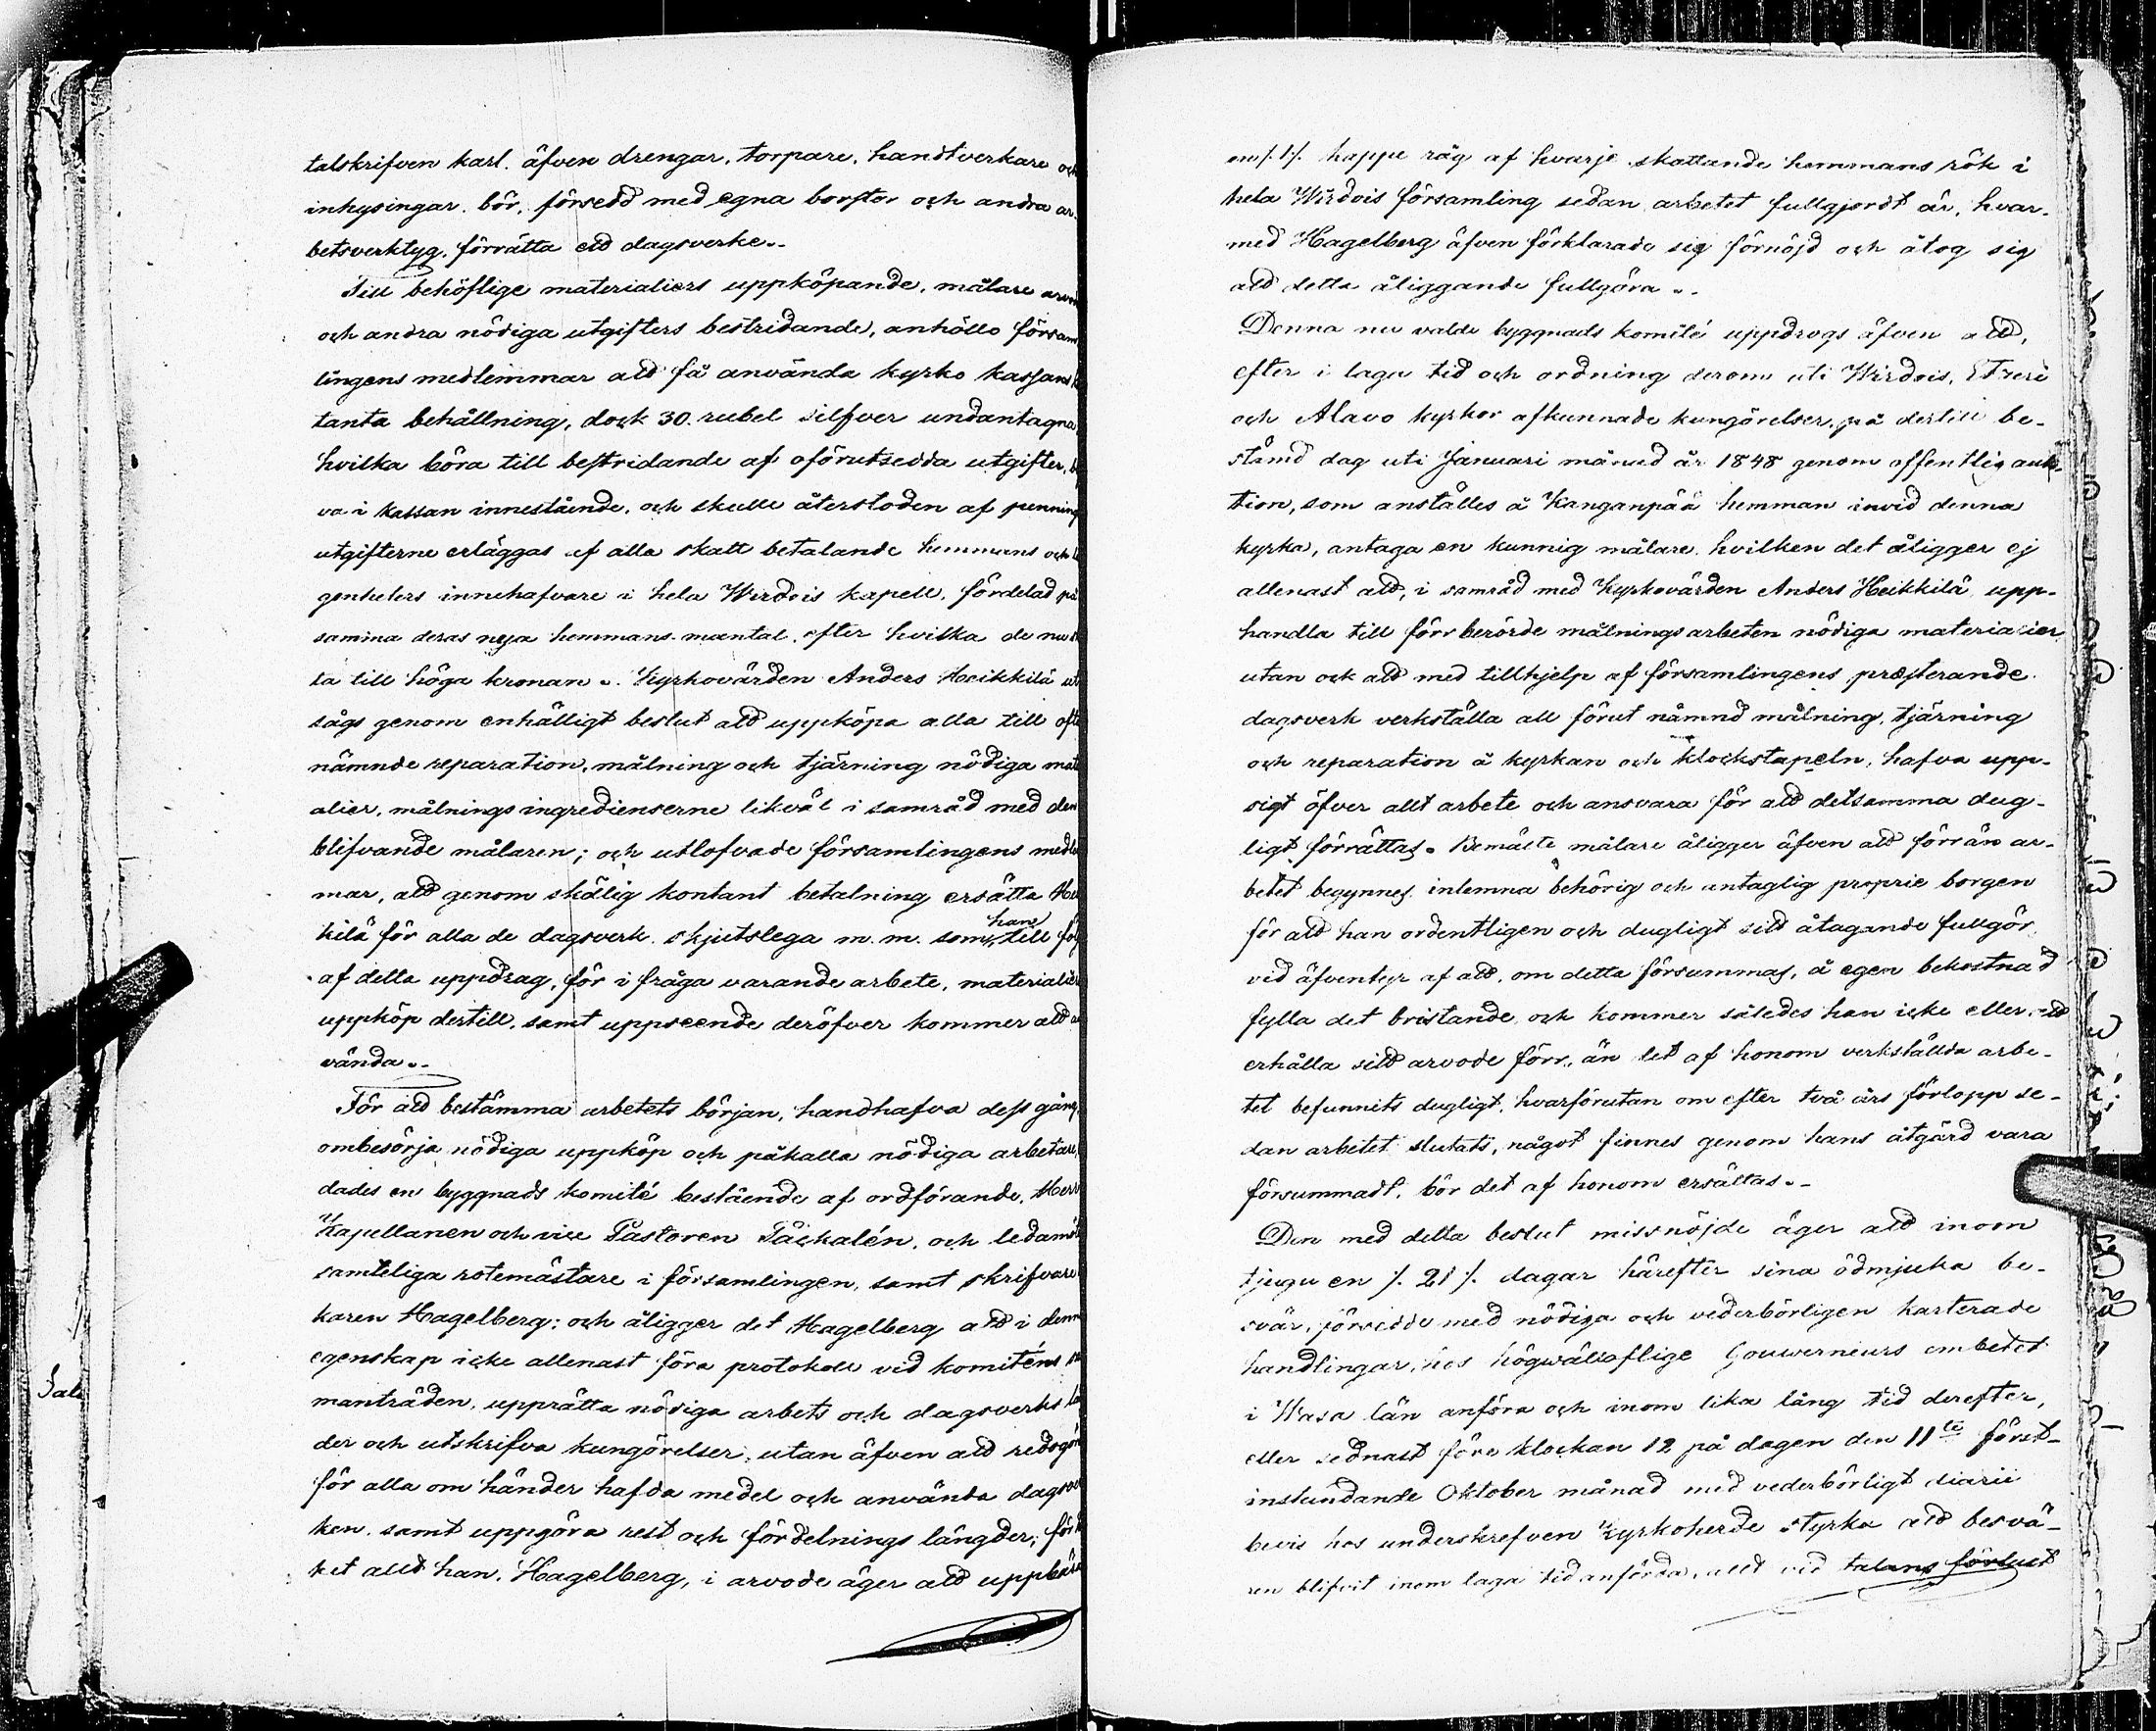 talskrifven karl. äfven drengar, torpare, handtverkare och
inhysingar. bör, försedd med egna borstor och andra ar-
betsverktyg, förrätta ett dagsverke..
Till behöflige materialiers uppköpande, målare arvode
och andra nödiga utgifters bestridande, anhöllo försam
lingens medlemmar att få använda kyrko kassans
tanta behållning, dock 30. rubel silfver undantagna
hvilka böra till bestridande af oförutsedda utgifter,
va i kassan innestående, och skulle återstoden af penning
utgifterne erläggas af alla skatt betalande hemmans och
genheters innehafvare i hela Wirdois kapell, fördelad på
samma deras nya hemmans-mantal, efter hvilka de nu
ta till höga kronan .. Kyrkovärden Anders Heikkilä ut
sågs genom enhälligt beslut att uppköpa alla till ofta
nämnde reparation, målning och tjärning nödiga mate
alier, målnings ingredienserne likväl i samråd med den
blifvande målaren; och utlofvade församlingens medle
mar, att genom skälig kontant betalning ersätta Hei
kilä för alla de dagsverk. skjutslega m. m. som han till föl
af detta uppdrag, för i fråga varande arbete, materialier
uppköp dertill, samt uppseende deröfver kommer att
vända..
För att bestämma arbetets början, handhafva dess gång,
ombesörja nödiga uppköp och påkalla nödiga arbetare,
dades en byggnads komité bestående af ordförande, Herr
Kapellanen och vice Pastoren Påskalén, och ledamöt
samteliga rotemästare i församlingen, samt skrifvare
karen Hagelberg; och åligger det Hagelberg att i denn
egenskap icke allenast föra protokoll vid komiténs
manträden, upprätta nödiga arbets och dagsverks
der och utskrifva kungörelser, utan äfven att redogöra
för alla om händer hafda medel och använda dagsver
ken. samt uppgöra rest och fördelnings längder; för
ket allt han, Hagelberg, i arvode äger att uppbära
en /. 1 /. kappe råg af hvarje skattande hemmans rök i
hela Wirdois församling sedan arbetet fullgjordt är, hvar-
med Hagelberg äfven förklarade sig förnöjd och åtog sig
att detta åliggande fullgöra ..
Denna nu valde byggnads komité uppdrogs äfven att,
efter i laga tid och ordning derom uti Wirdois, Etzeri
och Alavo kyrkor afkunnade kungörelser, på dertill be-
stämd dag uti Januari månad år 1848 genom offentlig auk-
tion, som anställes å Kanganpää hemman invid denna
kyrka, antaga en kunnig målare. hvilken det åligger ej
allenast att, i samråd med Kyrkovärden Anders Heikkilä upp-
handla till förr berörde målnings arbeten nödiga materialier
utan ock att med tillhjelp af församlingens præsterande
dagsverk verkställa all förut nämnd målning, tjärning
och reparation å kyrkan och klockstapeln, hafva upp-
sigt öfver allt arbete och ansvara för att detsamma dug-
ligt förrättas. Bemälte målare åligger äfven att förrän ar-
betet begynnes inlemna behörig och antaglig proprie borgen
för att han ordentligen och dugligt sitt åtagande fullgör,
vid äfventyr af att, om detta försummas, å egen bekostnad
fylla det bristande, och kommer således han icke eller att
erhålla sitt arvode förr, än det af honom verkställda arbe-
tet befunnits dugligt, hvarförutan om efter två års förlopp se-
dan arbetet slutats, något finnes genom hans åtgärd vara
försummadt, bör det af honom ersättas..
Den med detta beslut missnöjde äger att inom
tjugu en /. 21 /. dagar härefter sina ödmjuka be-
svär, försedde med nödiga och vederbörligen karterade
handlingar, hos högwälloflige Gouverneurs embetet
i Wasa län anföra och inom lika lång tid derefter,
eller sednast före klockan 12 på dagen den 11te först-
instundande Oktober månad med vederbörligt diarii
bevis hos underskrefven Kyrkoherde styrka att besvä-
ren blifvit inom laga tid anförda, allt vid talans förlust